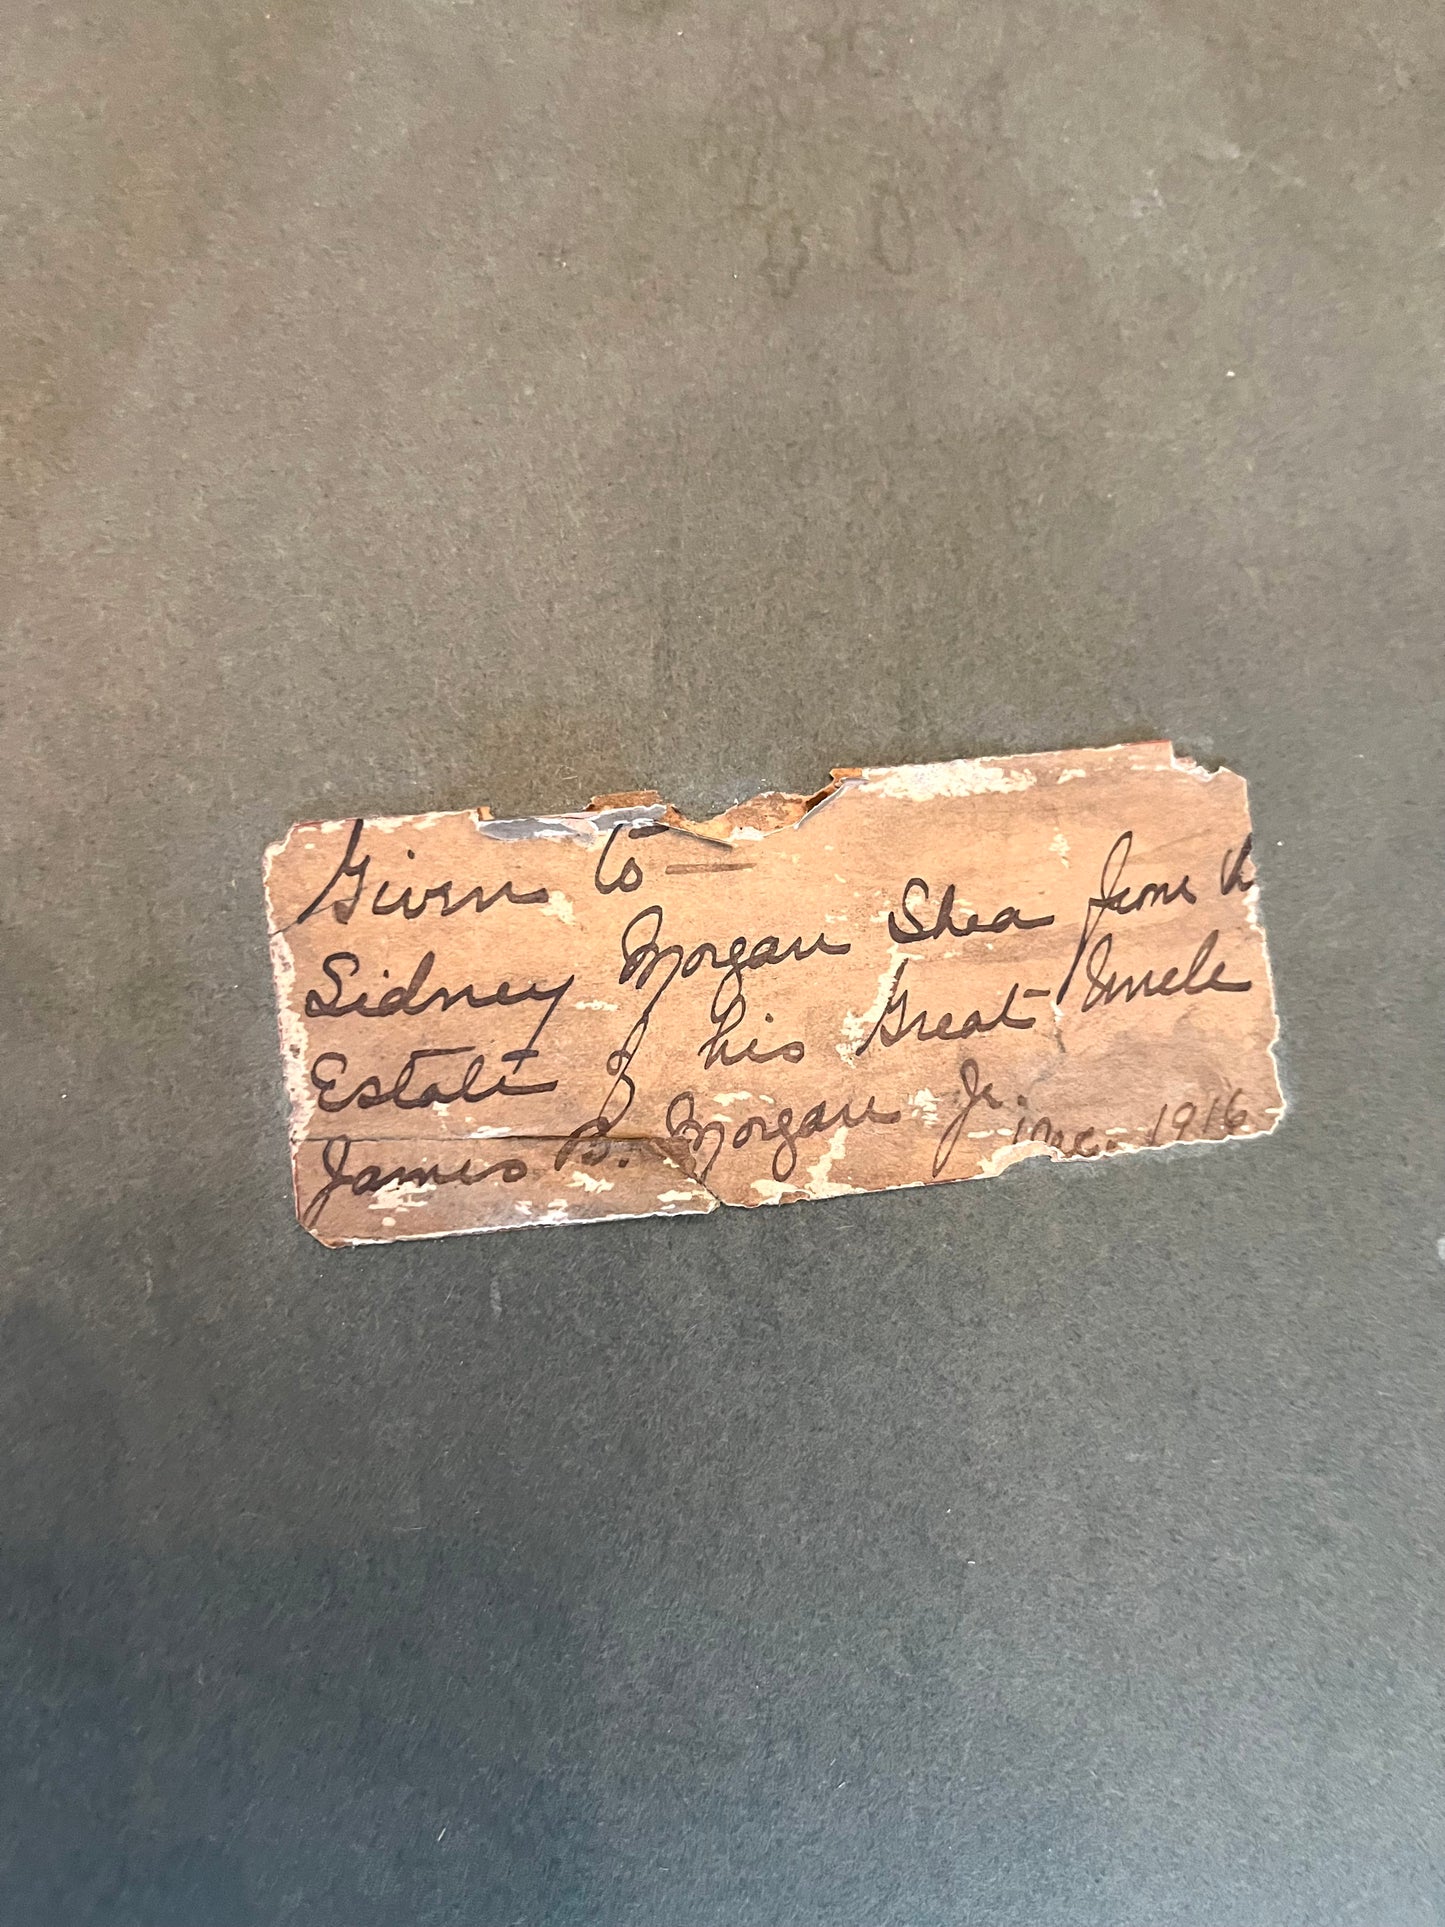 Given to —
Sidney Morgan Shea from
Estate of his Great Uncle
James B. Morgan Jr.
Dec. 1916